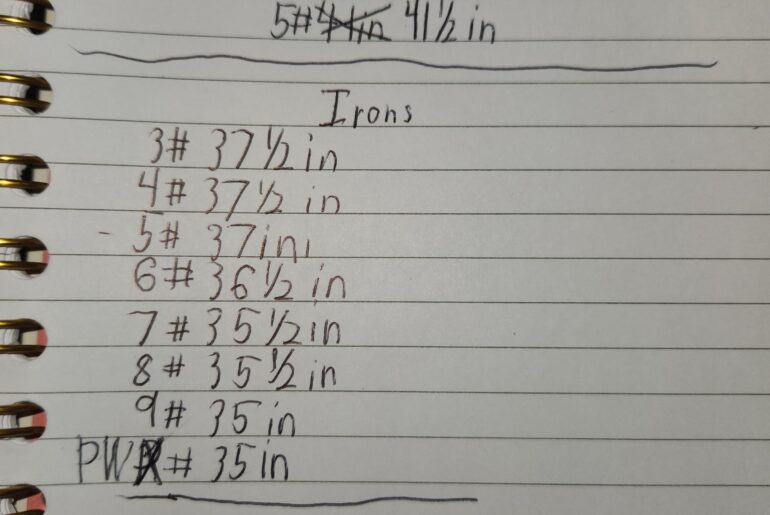 5# 41 1/2 in
Irons
3# 37 1/2 in
4# 37 1/2 in
- 5# 37 in
6# 36 1/2 in
7# 35 1/2 in
8# 35 1/2 in
9# 35 in
PW # 35 in